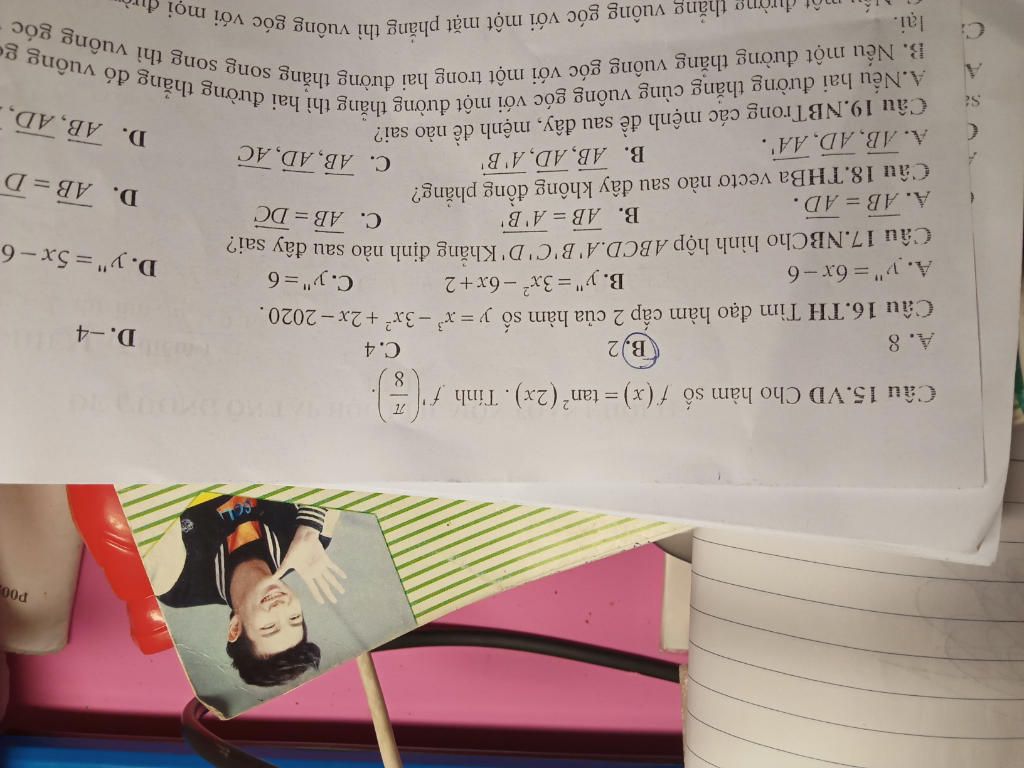 Câu 15.VD Cho hàm số f(x) = tan²(2x). Tính f'(π/8).
A. 8 B. 2 C. 4 D. −4
Câu 16.TH Tìm đạo hàm cấp 2 của hàm số y = x³ − 3x² + 2x − 2020.
A. y" = 6x − 6 B. y" = 3x² − 6x + 2 C. y" = 6 D. y" = 5x − 6
Câu 17.NBCho hình hộp ABCD.A'B'C'D' Khẳng định nào sau đây sai?
A. AB = AD. B. AB = A'B' C. AB = DC D. AB = D
Câu 18.THBa vecto nào sau đây không đồng phẳng?
A. AB, AD, AA'. B. AB, AD, A'B' C. AB, AD, AC D. AB, AD,
Câu 19.NBTrong các mệnh đề sau đây, mệnh đề nào sai?
A.Nếu hai đường thẳng cùng vuông góc với một đường thẳng thì hai đường thẳng đó vuông
B. Nếu một đường thẳng vuông góc với một trong hai đường thẳng song song thì vuông góc
lại.
một đường thẳng vuông góc với một mặt phẳng thì vuông góc với mọi